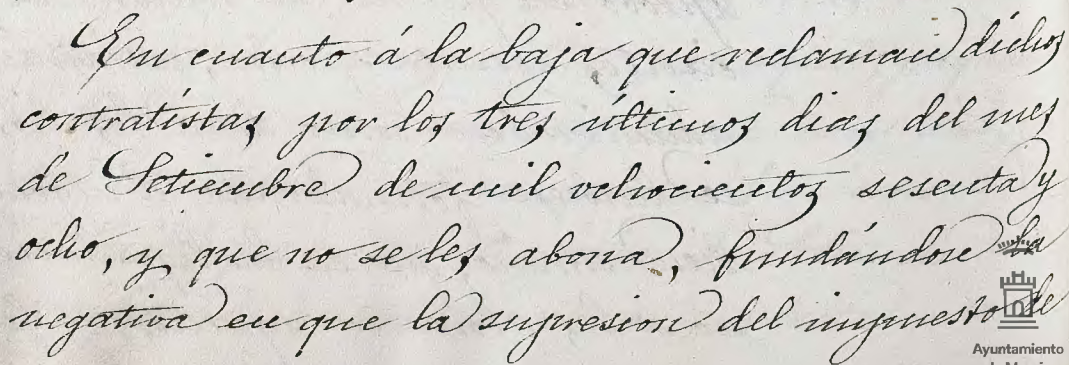 En cuanto á la baja que reclaman dichos
contratistas por los tres últimos dias del mes
de Setiembre de mil ochocientos sesenta y
ocho, y que no se les abona, fundándose la
negativa en que la supresion del impuesto de
Ayuntamiento